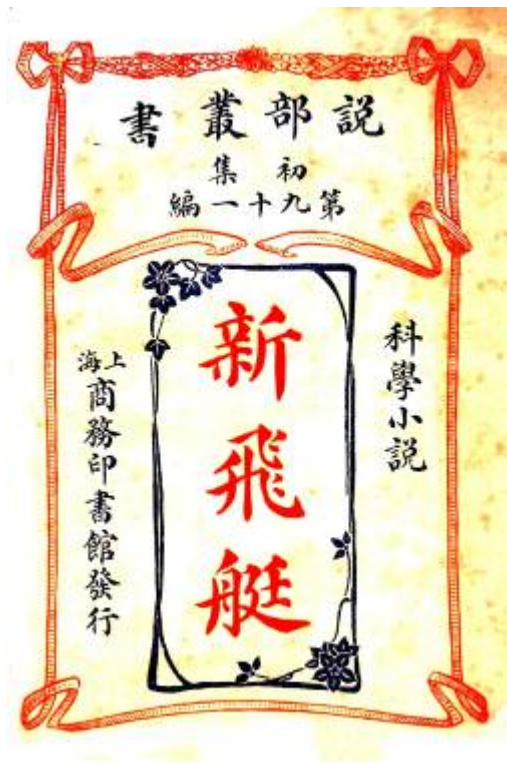 説部叢書
初集
第九十一編
科學小説
新飛艇
上海商務印書館發行